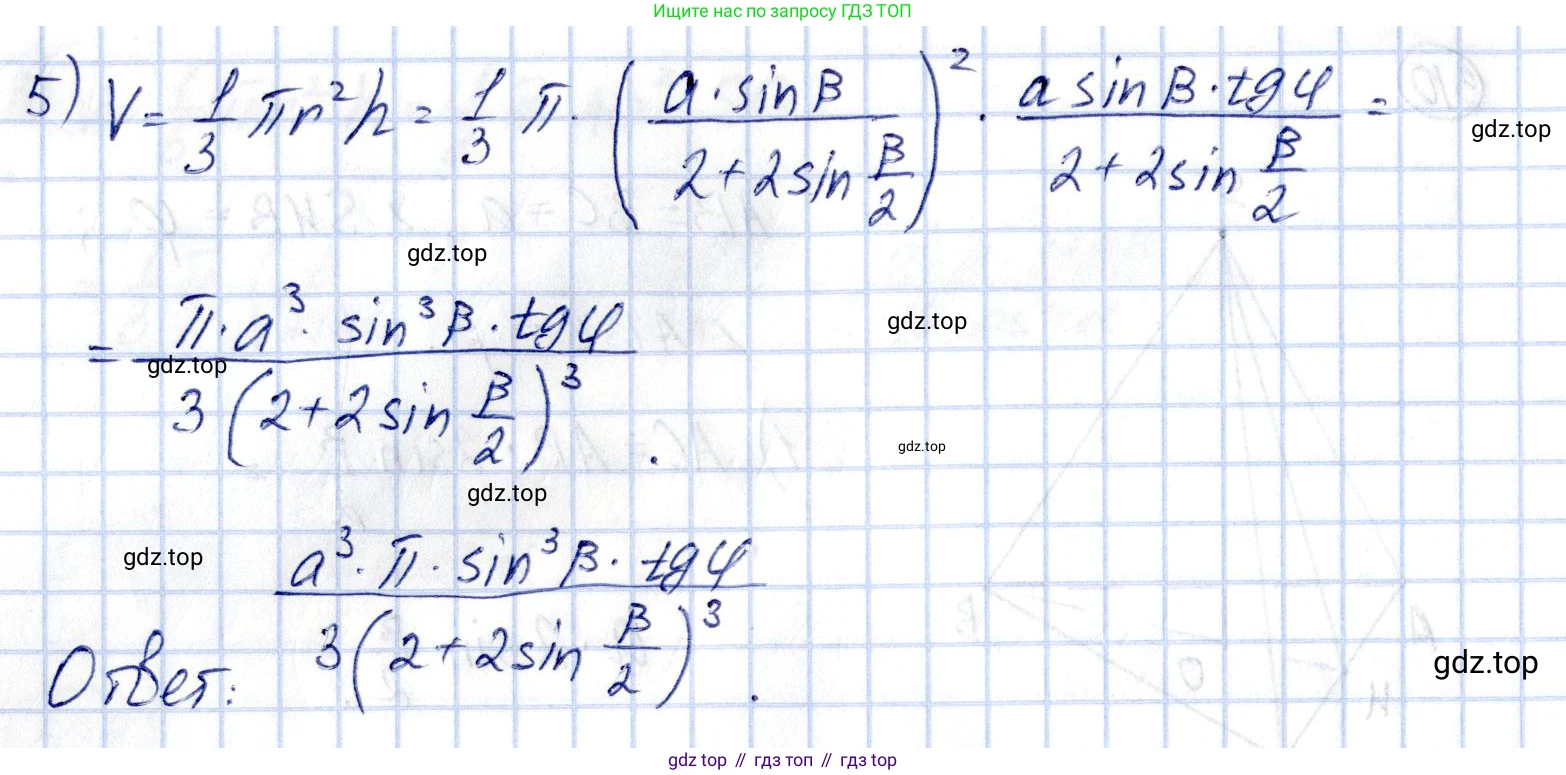 Ищите нас по запросу ГДЗ ТОП
5) V = 1/3 πr²h = 1/3 π · (a · sin β / (2 + 2 sin β/2))² · a sin β · tg φ / (2 + 2 sin β/2) =
gdz.top
gdz.top
= π · a³ · sin³ β · tg φ / 3(2 + 2 sin β/2)³ .
gdz.top
gdz.top
gdz.top
gdz.top
gdz.top
Ответ: a³ · π · sin³ β · tg φ / 3(2 + 2 sin β/2)³ .
gdz.top
gdz.top // гдз топ // гдз.top